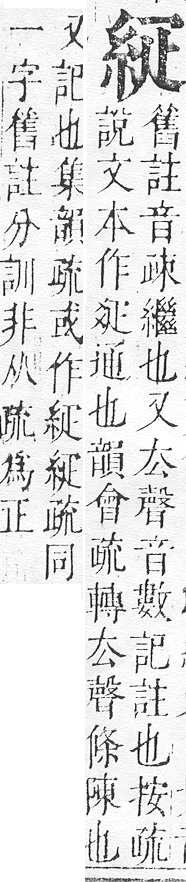 舊註音疎繼也又厺聲音數記註也按疏
說文本作𤕟通也韻會疏轉厺聲條陳也
又記也集韻疏或作疏同
一字舊註分訓非从疏為正